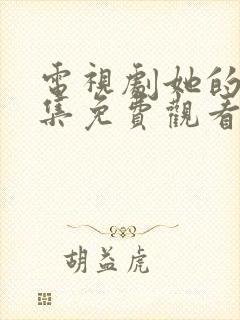 電視劇她的
集免費觀看
胡益虎